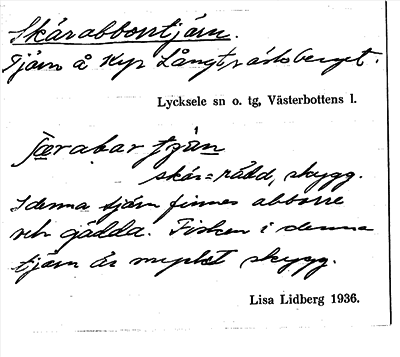 Skärabborrtjärn.
Tjärn å Kpr Långträskberget.
Lycksele sn o. tg, Västerbottens l.
tjärn
skär = rädd, skygg.
I denna tjärn finnes abborre
och gädda. Fisken i denna
tjärn är mycket skygg.
Lisa Lidberg 1936.